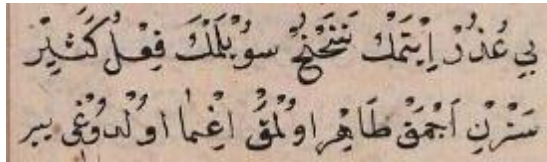 بي عُذُرْ اِيتمَكْ تَنَحْنُحْ سويْلمَكْ فِعْلِ كَثيرْ
سَتْرِنِ اَجْمَقْ طَاهِر اولمَقْ اِغْمَا اولدوُغى يير